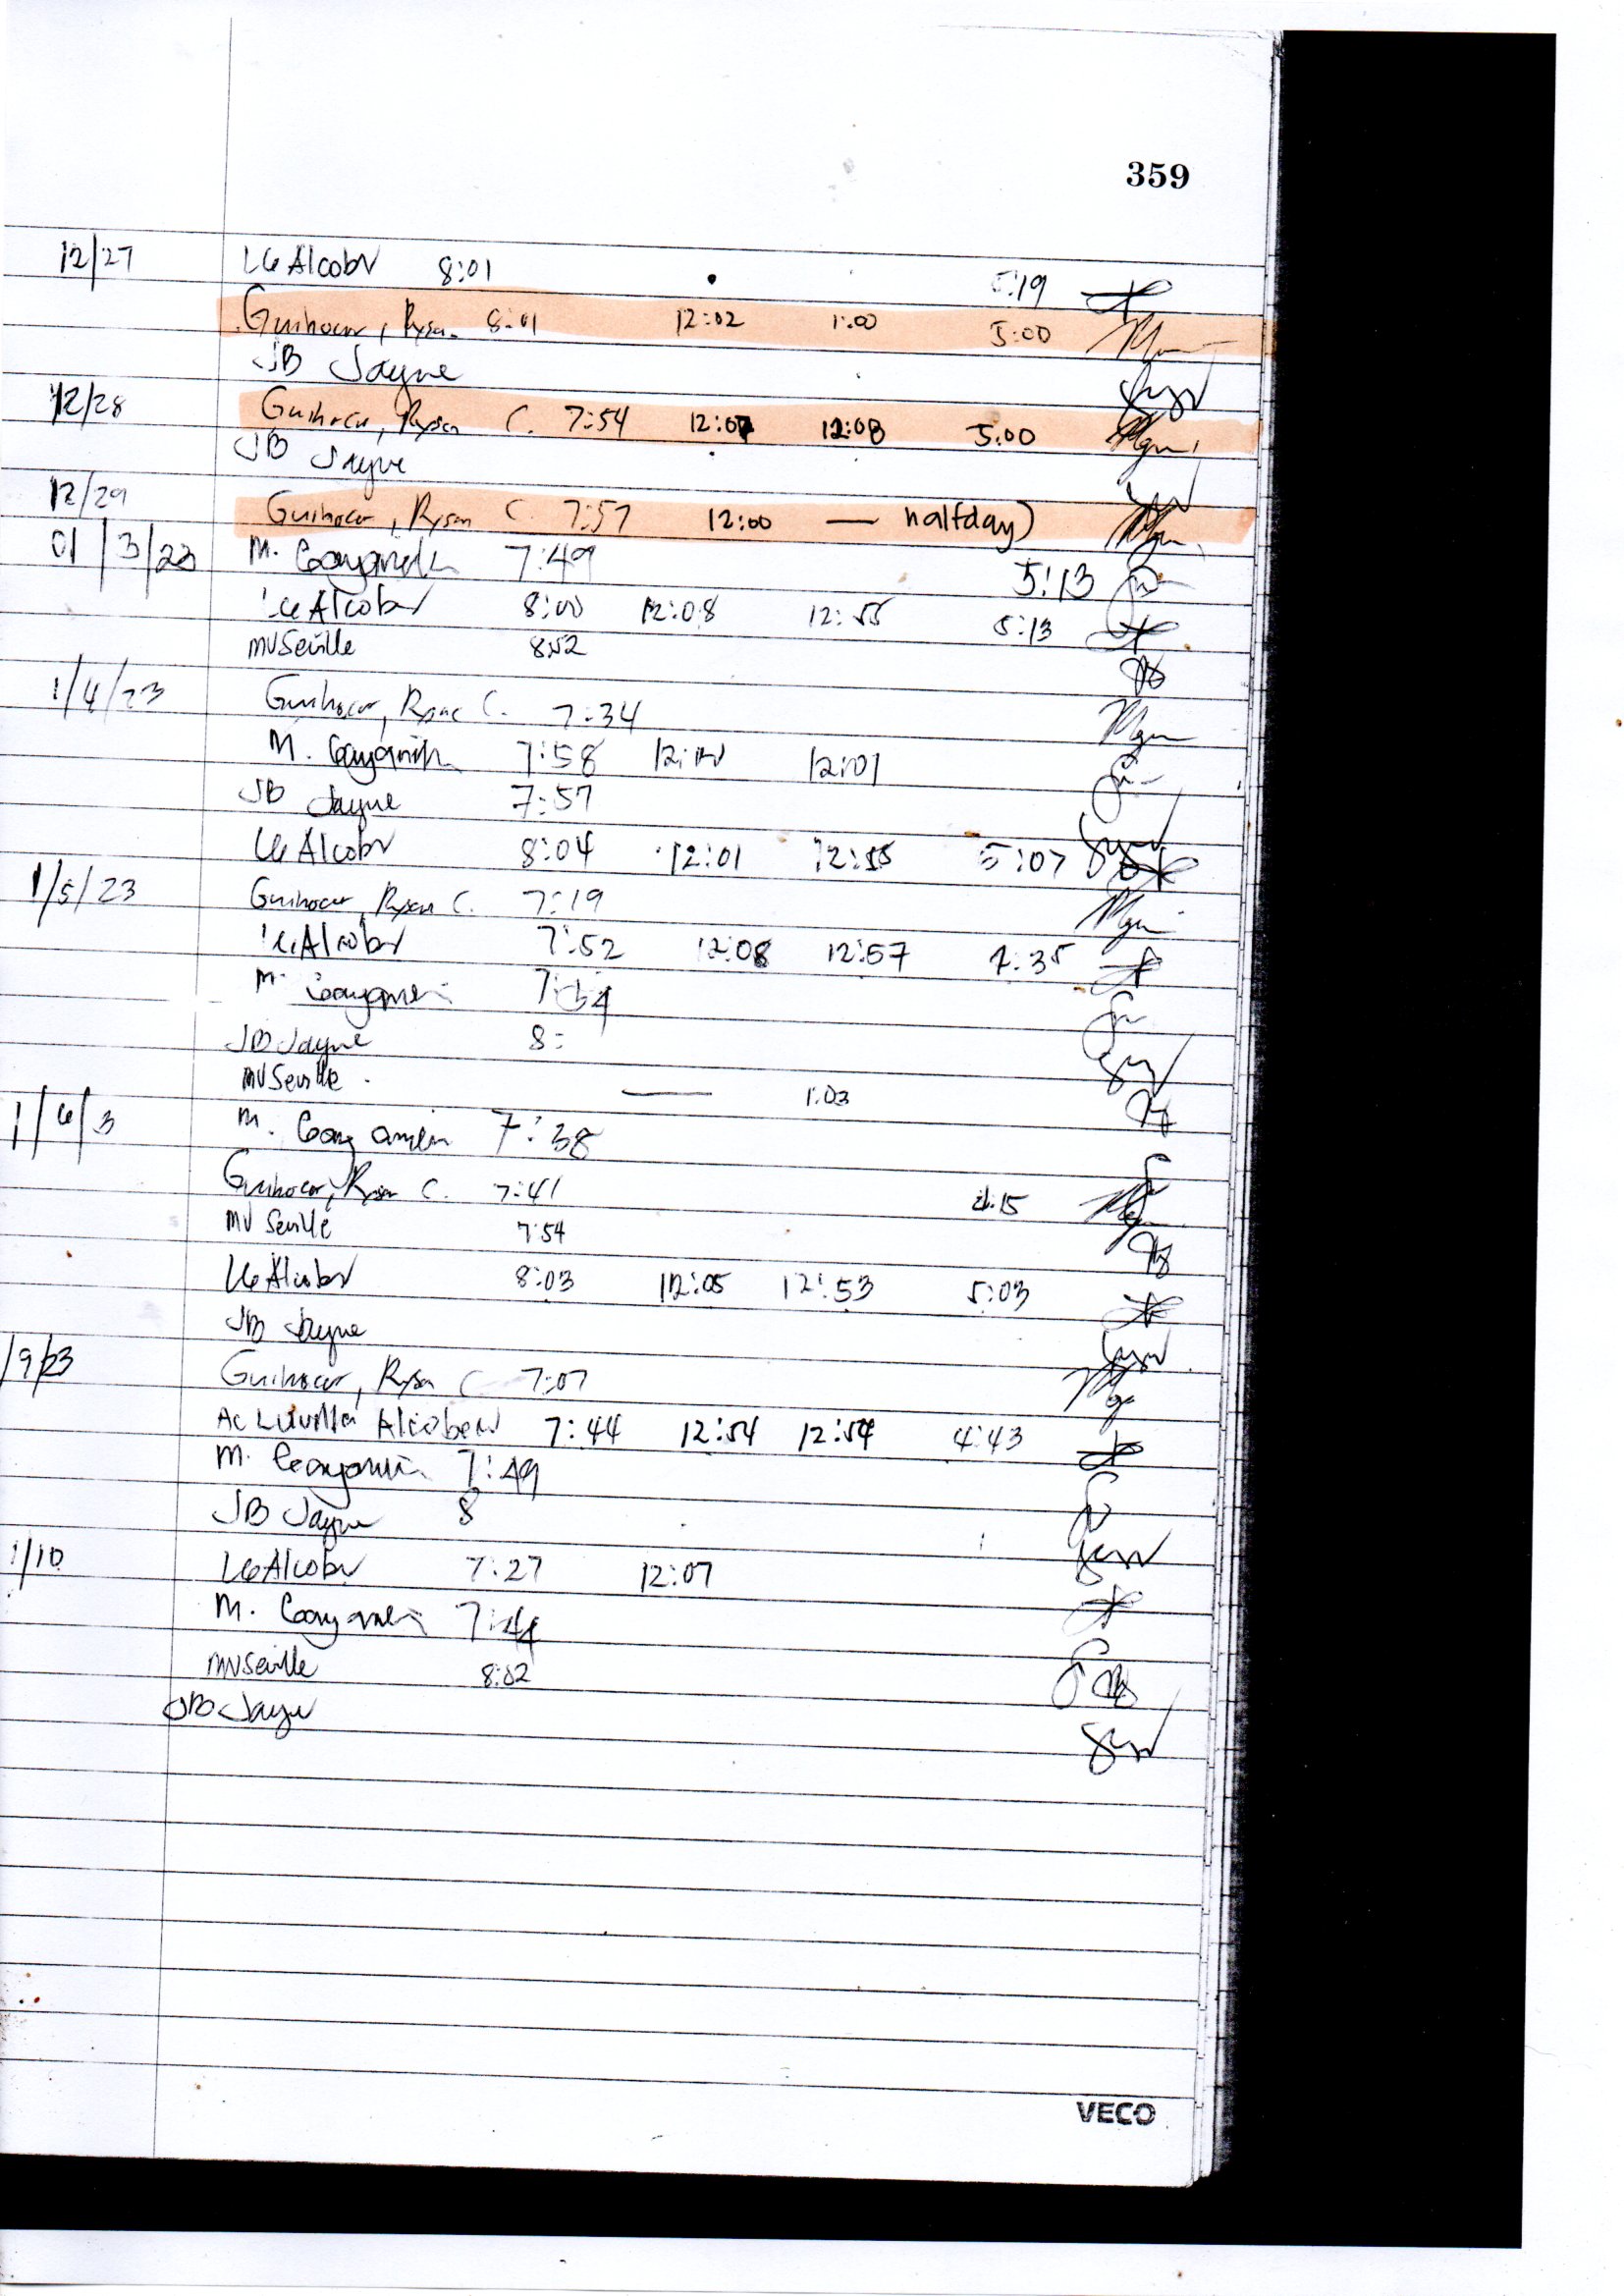 359
12/27 LG Alcober 8:01 5:19
Guihocor, Rysa 8:01 12:02 1:00 5:00
JB Jayne
12/28 Guihocor, Rysa C. 7:54 12:07 12:08 5:00
JB Jayne
12/29 Guihocor, Rysa C. 7:57 12:00 — halfday)
01/3/23 M. 7:49 5:13
LG Alcober 8:00 12:08 12:55 5:13
MVSeville 8:52
1/4/23 Guihocor, Rysa C. 7:34
M. 7:58 12:01
JB Jayne 7:57
LG Alcober 8:04 12:01 12:55 5:07
1/5/23 Guihocor, Rysa C. 7:19
LG Alcober 7:52 12:08 12:57 4:35
M. 7:54
JB Jayne 8:
MVSeville — 1:03
1/6/3 M. 7:38
Guihocor, Rysa C. 7:41 4:15
MV Seville 7:54
LG Alcober 8:03 12:05 12:53 5:03
JB Jayne
/9/23 Guihocor, Rysa C 7:07
AC Alcober 7:44 12:54 12:54 4:43
M. 7:49
JB Jayne 8
1/10 LG Alcober 7:27 12:07
M. 7:44
MVSeville 8:02
JB Jayne
VECO